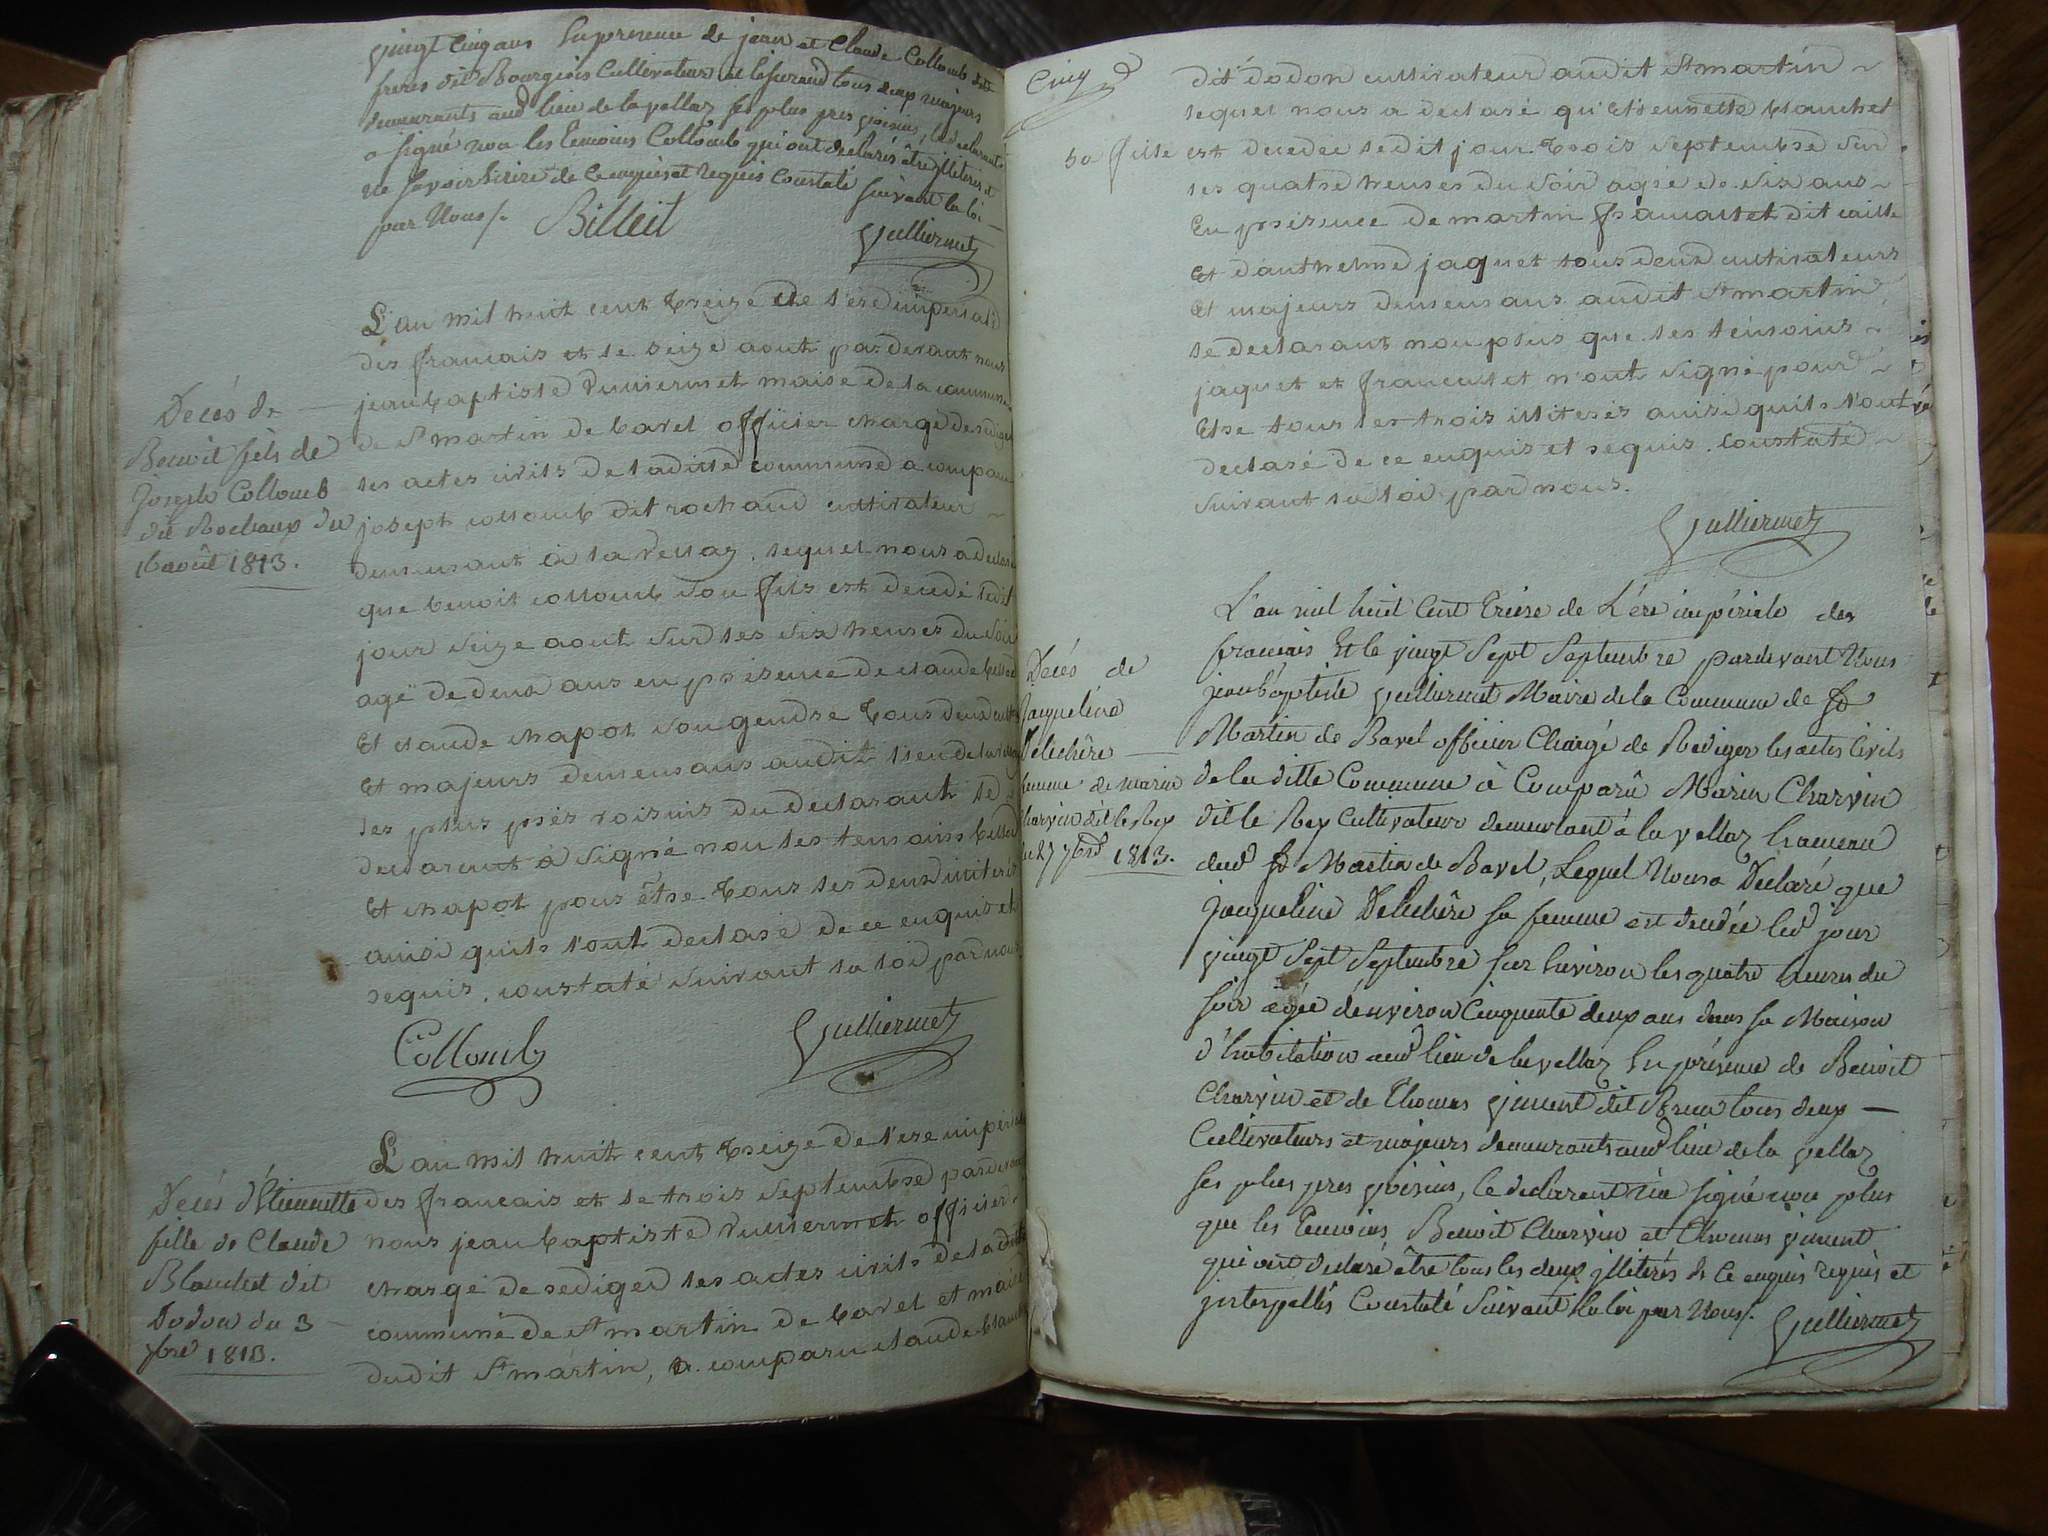 vingt cinq ans En presence de jean et Claude Collomb dits
freres dit Bourgeois Cultivateurs et tous deux majeurs
demeurants aud lieu de la vellaz ses plus pres voisins, le declarant
a signé non les temoins Collomb qui ont declarés être illiterés et
ne savoir Ecrire de ce enquis et requis Constaté suivant la loi
par Nous/.
Billiet
Vulliermet
L'an mil huit cent treize de l'ere imperiale
des francais et le seize aout par devant nous
jean baptiste Vulliermet maire de la commune
de St martin de bavel officier chargé de rediger
les actes civils de la ditte commune a comparu
joseph collomb dit rochaud cultivateur
demeurant à la vellaz. lequel nous a declaré
que benoit collomb son fils est decedé ledit
jour seize aout sur les six heures du soir
agé de deux ans en presence de claude
Et claude chapot son gendre tous deux
Et majeurs demeurans audit lieu de la vellaz
les plus près voisins du declarant le
declarant a signé non les temoins
Et chapot pour être tous les deux illiterés
ainsi quils l'ont declaré de ce enquis et
requis. constaté suivant la loi par nous
Collomb
Vulliermet
L'an mil huit cent treize de l'ere imperiale
des francais et le trois septembre pardevant
nous jean baptiste Vulliermet officier
chargé de rediger les actes civils de la ditte
commune de St martin de bavel et maire
dudit St martin, a comparu claude blanchet
Decés de
Benoit fils de
Joseph Collomb
dit Rochaux du
16 août 1813.
Decés d'Etiennette
fille de Claude
Blanchet dit
Dodon du 3
7bre 1813.
Cinq
dit dodon cultivateur audit St martin
lequel nous a declaré qu'Etiennette blanchet
sa fille est decedée ledit jour trois septembre sur
les quatre heures du soir agée de six ans
En présence de martin francallet dit caille
Et d'anthelme jaquet tous deux cultivateurs
Et majeurs demeurans audit St martin
le declarant non plus que les temoins
jaquet et francallet n'ont signé pour
Etre tous les trois illiterés ainsi quils l'ont
declaré de ce enquis et requis. constaté
suivant la loi par nous.
Vulliermet
L'an mil huit Cent treize de L'ére impériale des
francais Et le vingt Sept Septembre pardevant Nous
jean baptiste Vulliermet Maire de la Commune de St
Martin de Bavel officier Chargé de Rediger les actes Civils
de la ditte Commune à Comparû Marin Charvin
dit le Rey Cultivateur demeurant à la vellaz hameau
dud St Martin de Bavel, Lequel Nous a Declaré que
Jaqueline Deluchère sa femme est decedée led jour
vingt Sept Septembre sur Environ les quatre heures du
soir agée d'environ Cinquante deux ans dans sa Maison
d'habitation aud lieu de la vellaz En présence de Benoit
Charvin et de Thomas vincent dit Brun tous deux
Cultivateurs et majeurs demeurants aud lieu de la vellaz
ses plus pres voisins, le declarant n'a signé non plus
que les temoins Benoit Charvin et Thomas vincent
qui ont Declaré être tous les deux illiterés de Ce enquis requis et
interpellés Constaté Suivant la loi par Nous/.
Vulliermet
Decés de
Jacqueline
Deluchère
femme de Marin
Charvin dit le Rey
du 27 7bre 1813.